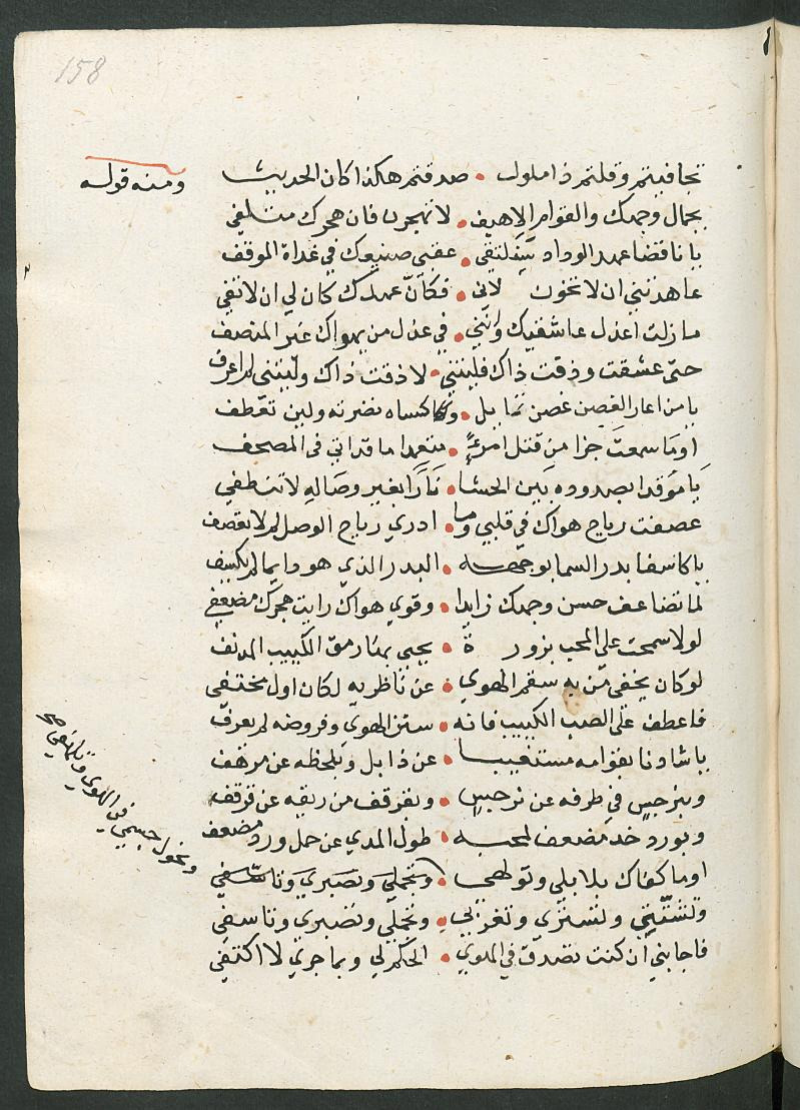 158
تجافيتم وقلتم ذا ملول • صدقتم هكذا كان الحديث
ومنه قوله
بجمال وجهك والقوام الاهيف • لا تهجرن فان هجرك متلفي
يا ناقضا عهد الوداد نلتقي • عفني صنيعك في غداة الموقف
عاهدتني ان لا تخون لاني • فكأنّ عهدك كان لي ان لا تفي
ما زلت اعذل عاشقيك وانني • في عذل من يهواك غير المنصف
حتى عشقت وذقت ذاك فليتني • لا ذقت ذاك وليتني لم اعرف
يا من اعار الغصن غصن تمايل • وكساه نضرته ولين تعطف
اوما سمعتَ جزا من قتل امرءٍ • متعمدا ما قد اتى في المصحف
يا موقدا بصدوده بين الحشا • نارًا بغير وصاله لا تنطفي
عصفت رياح هواك في قلبي وما • ادري رياح الوصل لم لا تعصف
يا كاسفا بدر السما بوجهه • البدر الذي هو دايما لم يكسف
لما تضاعف حسن وجهك زايدا • وقوي هواك رايت هجرك مضعفي
لولا سمحت على المحب بزورة • يحيى بها رمق الكييب المدنف
لو كان يخفى من به سقم الهوي • عن ناظريه لكان اول مختفي
فاعطف على الصب الكييب فانه • سنن الهوي وفروضه لم يعرف
يا شادنا بقوامه مستغنيا • عن ذابل وبلحظه عن مرهف
وبنرجس في طرفه عن نرجس • وبقرقف من ريقه عن قرقف
وبورد خد مضعف لمحبه • طول المدي عن حمل ورد مضعف
اوما كفاك بلابلي وتولهي • وتجملي وتصبري وتاسفي
ونحول جسمي في الهوي وتلهفي صح
وتشتتي وتستري وتغربي • وتجملي وتصبري وتاسفي
فاجابني ان كنت تصدق في الهوي • الحكم لي وبما جري لا اكتفي